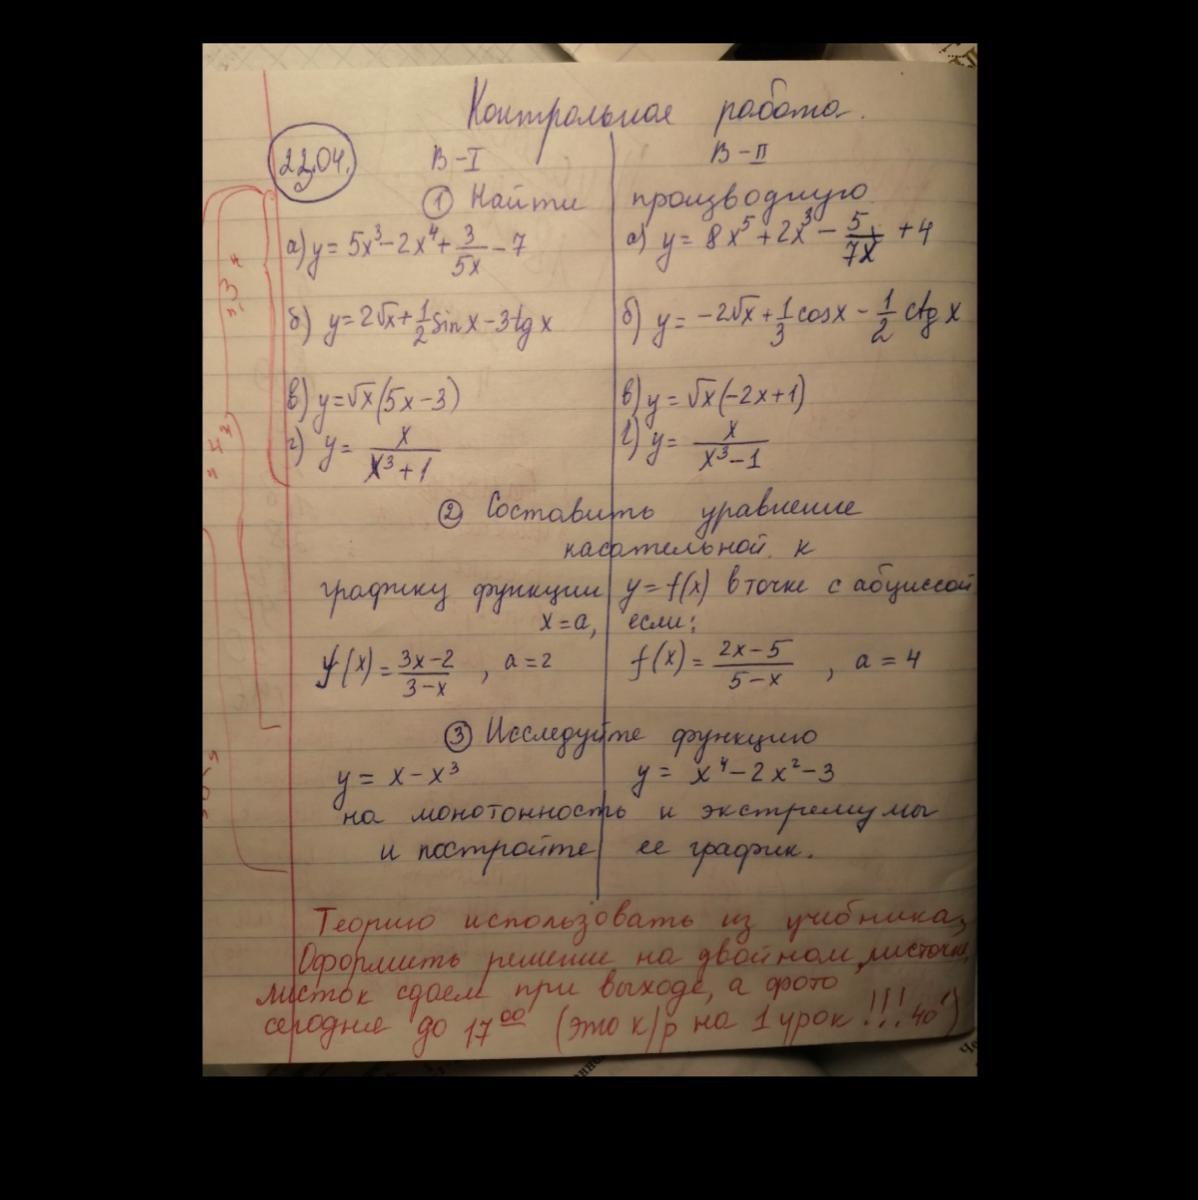 Контрольная работа.
22.04. В-I В-II
① Найти производную
а) y = 5x³ - 2x⁴ + 3/5x - 7 а) y = 8x⁵ + 2x³ - 5/7x + 4
б) y = 2√x + 1/2 sin x - 3tg x б) y = -2√x + 1/3 cos x - 1/2 ctg x
в) y = √x(5x-3) в) y = √x(-2x+1)
г) y = x/(x³+1) г) y = x/(x³-1)
② Составить уравнение
касательной к
графику функции y = f(x) в точке с абциссой
x = a, если:
f(x) = (3x-2)/(3-x), a = 2 f(x) = (2x-5)/(5-x), a = 4
③ Исследуйте функцию
y = x - x³ y = x⁴ - 2x² - 3
на монотонность и экстремумы
и постройте ее график.
Теорию использовать из учебника,
Оформить решение на двойном листочке,
листок сдаем при выходе, а фото
сегодня до 17⁰⁰ (это к/р на 1 урок !!! 40')
"3"
"4"
"5"